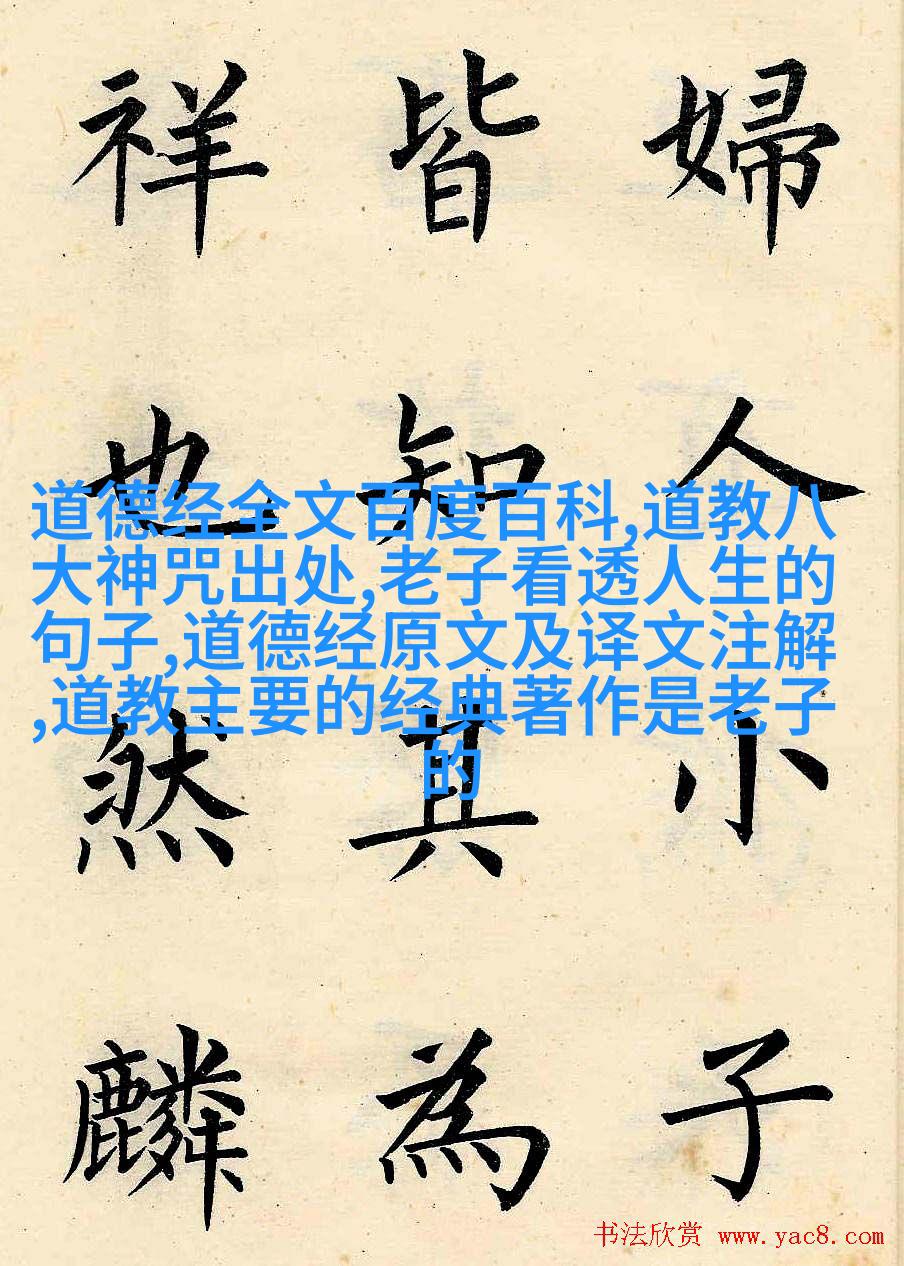 婦人小子
皆知其為
祥也然麟
道德经全文百度百科,道教八
大神咒出处,老子看透人生的
句子,道德经原文及译文注解
,道教主要的经典著作是老子
的
书法欣赏 www.yac8.com